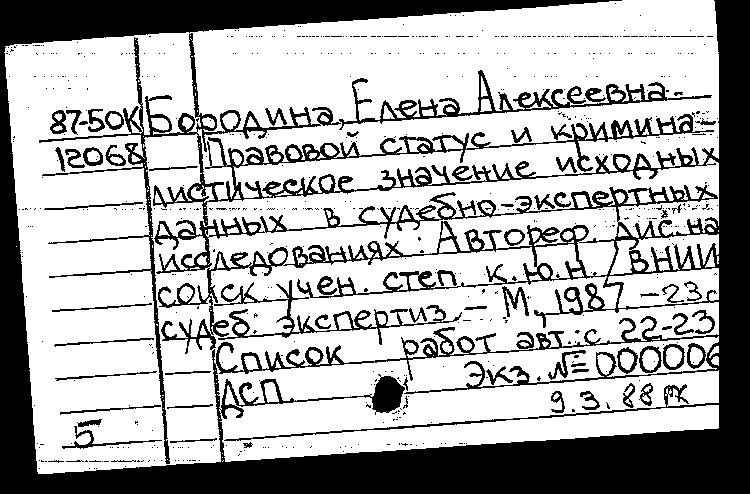 87-50К Бородина, Елена Алексеевна.-
12068 Правовой статус и кримина-
листическое значение исходных
данных в судебно-экспертных
исследованиях: Автореф. дис. на
соиск. учен. степ. к.ю.н. / ВНИИ
судеб. экспертиз. - М., 1987. - 23 с
Список работ авт.: с. 22-23
ДСП. Экз. № 000006
5 9.3.88